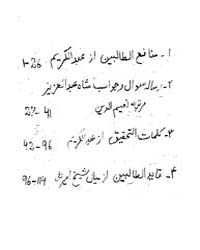 ۱۔ منافع الطالبین از عبدالکریم 1-26
۲۔ رسالہ سوال و جواب شاہ عبدالعزیز
مرتبہ نعیم الدین 27-41
۳۔ کلمات التحقیق از عبدالکریم 42-96
۴۔ الطالبین از میاں شیخ 96-114